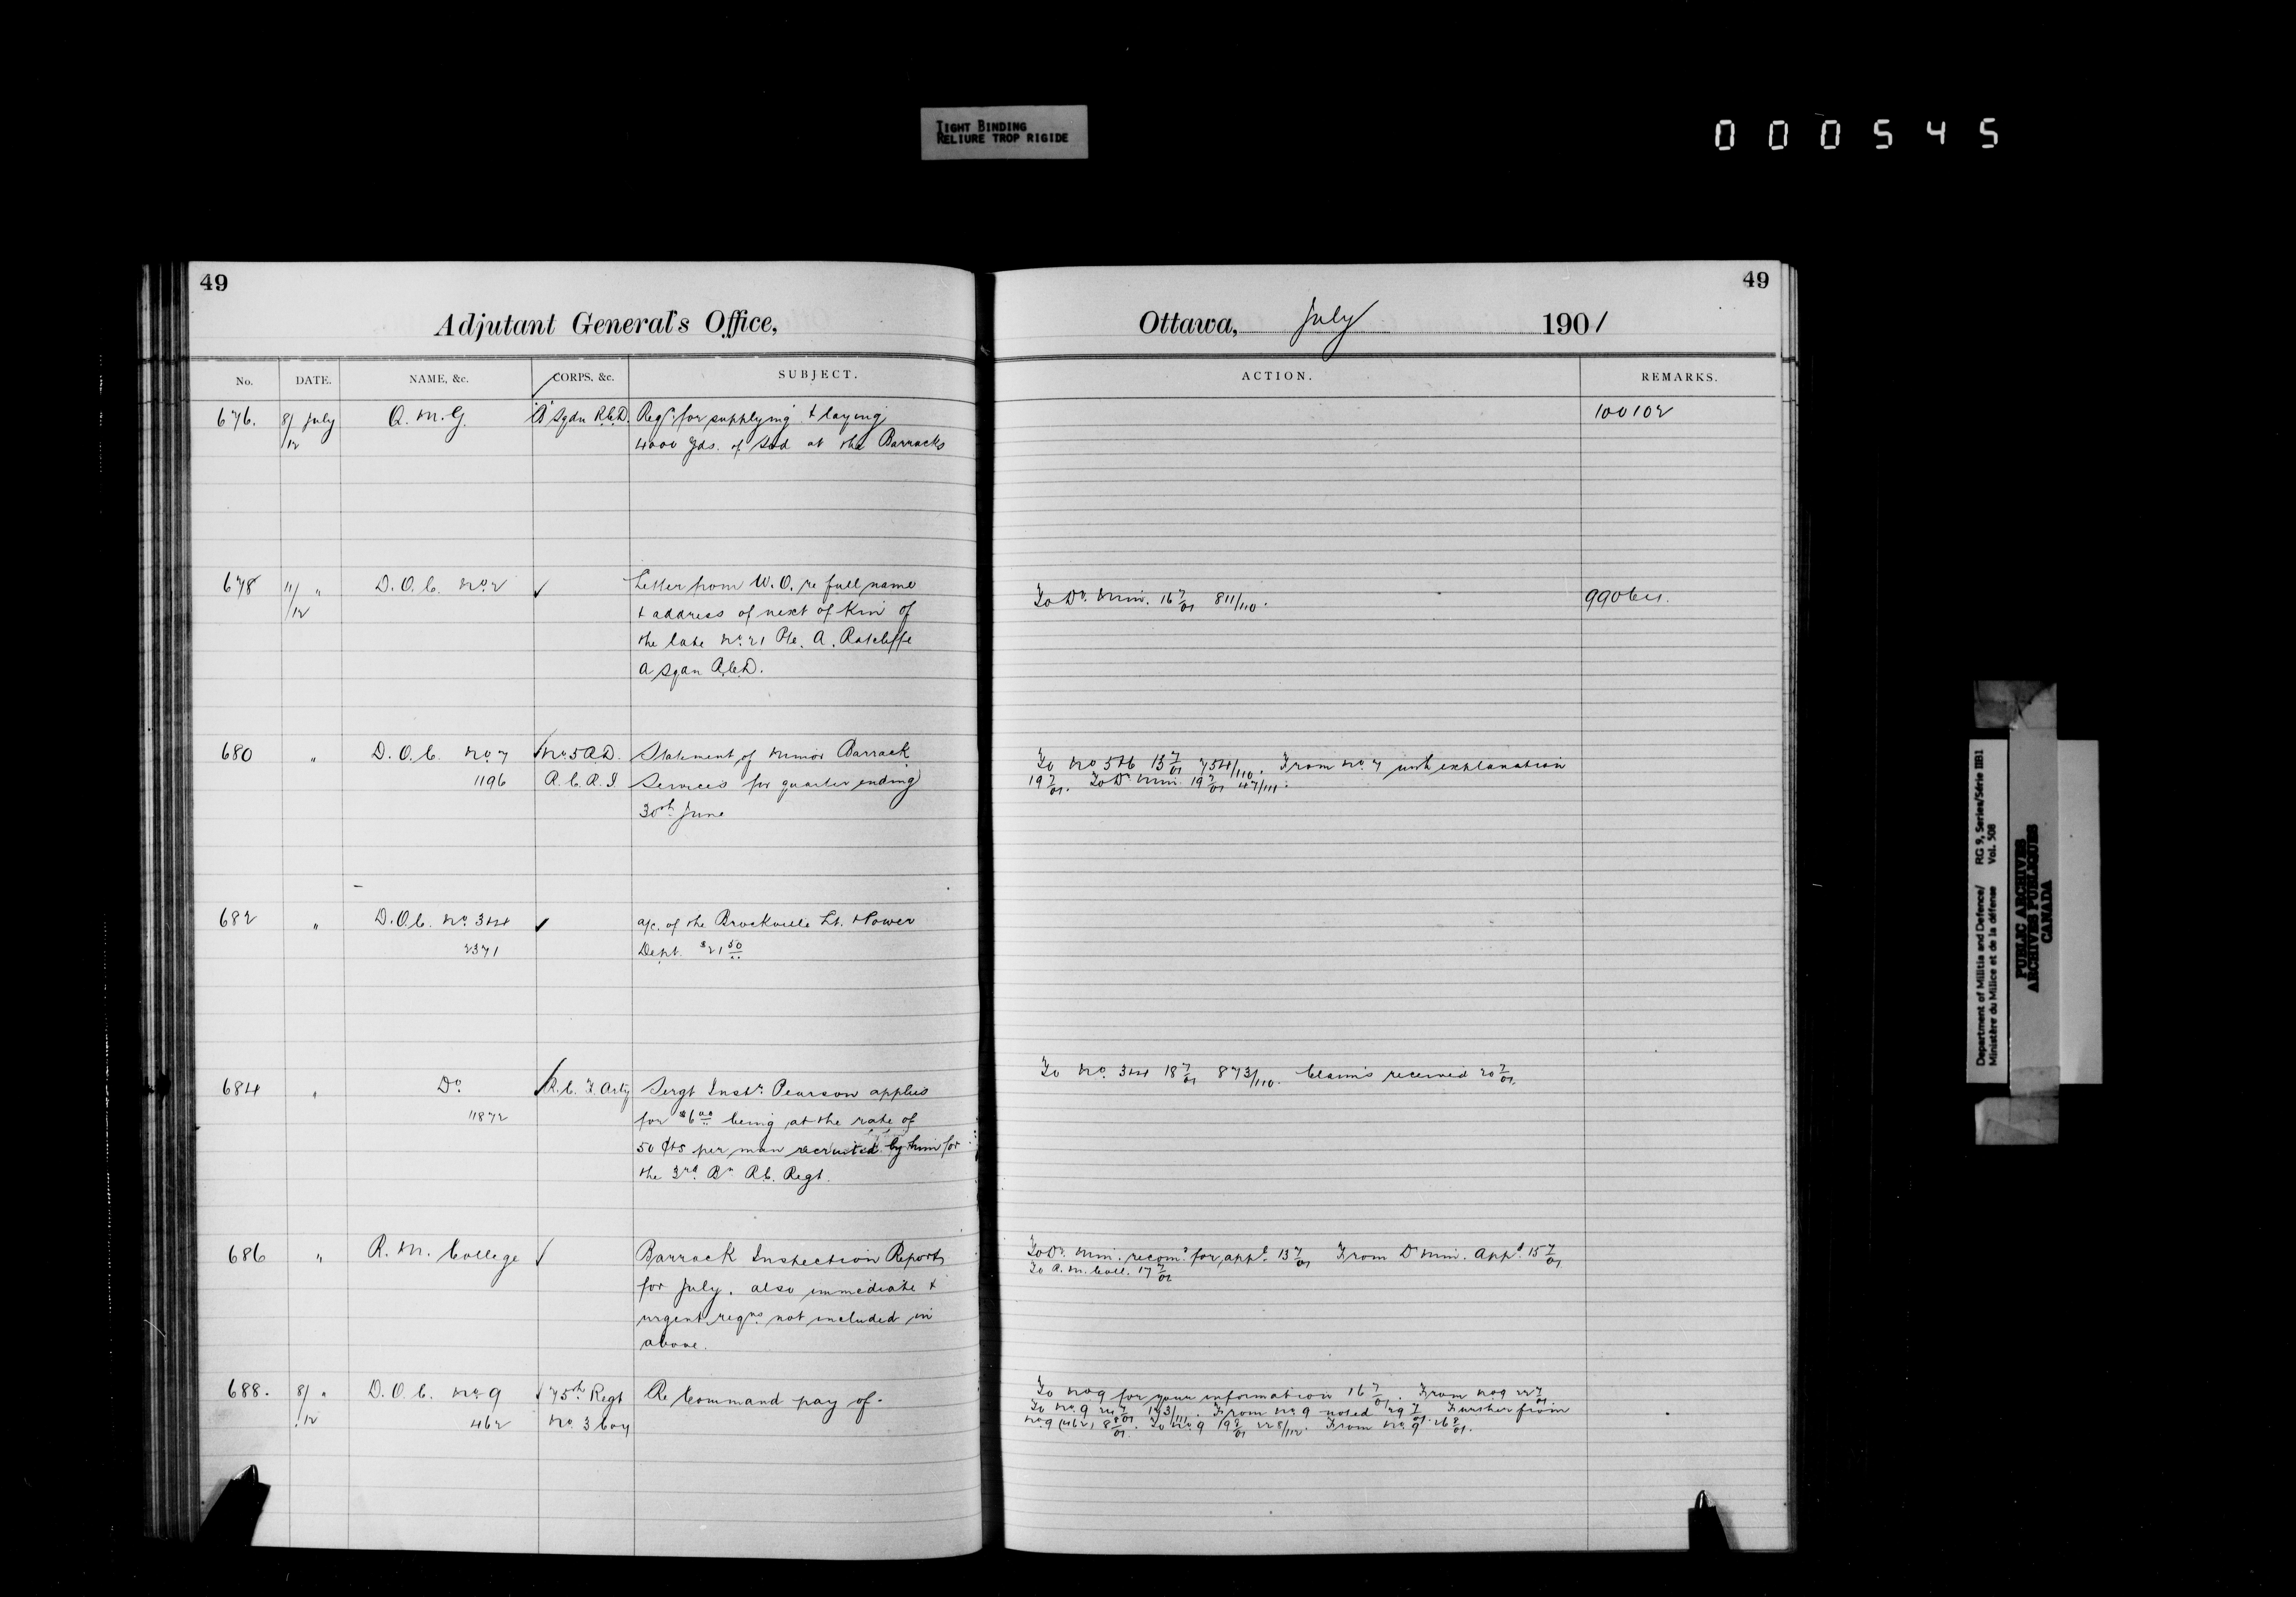 TIGHT BINDING
RELIURE TROP RIGIDE
000545
49
Adjutant General's Office,
No. DATE. NAME, &c. CORPS, &c. SUBJECT.
676. 8/ July Q. M. G. "A" Sqdn R.C.D. Reqn for supplying & laying
/12 4000 yds. of sod at the Barracks
678 11/ " D. O. C. No. 2 ✓ Letter from W. O. re full name
/12 & address of next of Kin of
the late No. 21 Pte. A. Ratcliffe
A Sqdn R.C.D.
680 " D. O. C. No. 7 ✓ No. 5 A.D. Statement of minor Barrack
1196 R. C. A. I Services for quarter ending
30th June
682 " D.O.C. No. 3&4 ✓ a/c. of the Brockville Lt. & Power
2371 Dept. $21 50
684 " Do ✓ R. C. F. Arty Sergt Instr. Pearson applies
11872 for $6 00 being at the rate of
50 cts per man recruited by him for
the 3rd. Bn R.C. Regt.
686 " R. M. College ✓ Barrack Inspection Report
for July. also immediate &
urgent reqns. not included in
above.
688. 8/ " D. O. C. No. 9 ✓ 75th Regt Re Command pay of.
/12 462 No. 3 Coy
49
Ottawa, July 1901
ACTION. REMARKS.
100102
To Dr. Min. 16 7/01 811/110.
To No 5&6 13 7/01 754/110. From No. 7 with explanation
19 7/01. To Dr Min. 19 7/01 47/111.
To No. 3&4 18 7/01 873/110. Claims received 20 7/01.
To Dr. Min. recomd for appl. 13 7/01 From Dr Min. Appd. 15 7/01
To R. M. Coll. 17 7/01
To No 9 for your information 16 7/01. From No 9 22 7/01.
To No. 9 24 7/01 From No. 9 noted 29 7/01. Further from
No. 9 (462) 8 8/01. To No. 9 19 8/01 228/112. From No. 9 26 8/01.
Department of Militia and Defence/ RG 9, Series/Série IIB1
Ministère du Milice et de la défense Vol. 508
PUBLIC ARCHIVES
ARCHIVES PUBLIQUES
CANADA